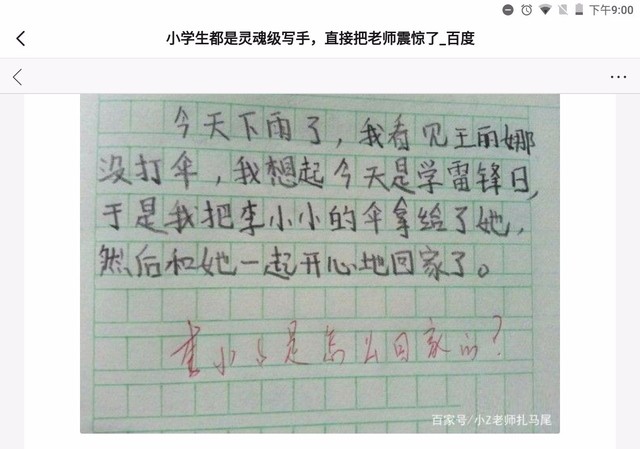 下午9:00
小学生都是灵魂级写手，直接把老师震惊了_百度
今天下雨了，我看见王丽娜
没打伞，我想起今天是学雷锋日，
于是我把李小小的伞拿给了她，
然后和她一起开心地回家了。
李小小是怎么回家的？
百家号/小Z老师扎马尾